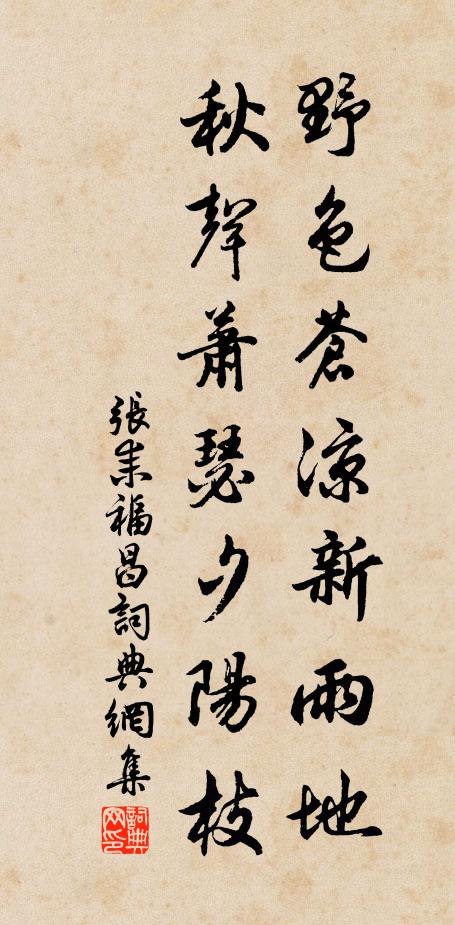 野色蒼涼新雨地
秋聲蕭瑟夕陽枝
張業福昌詞典網集
詞典
网印